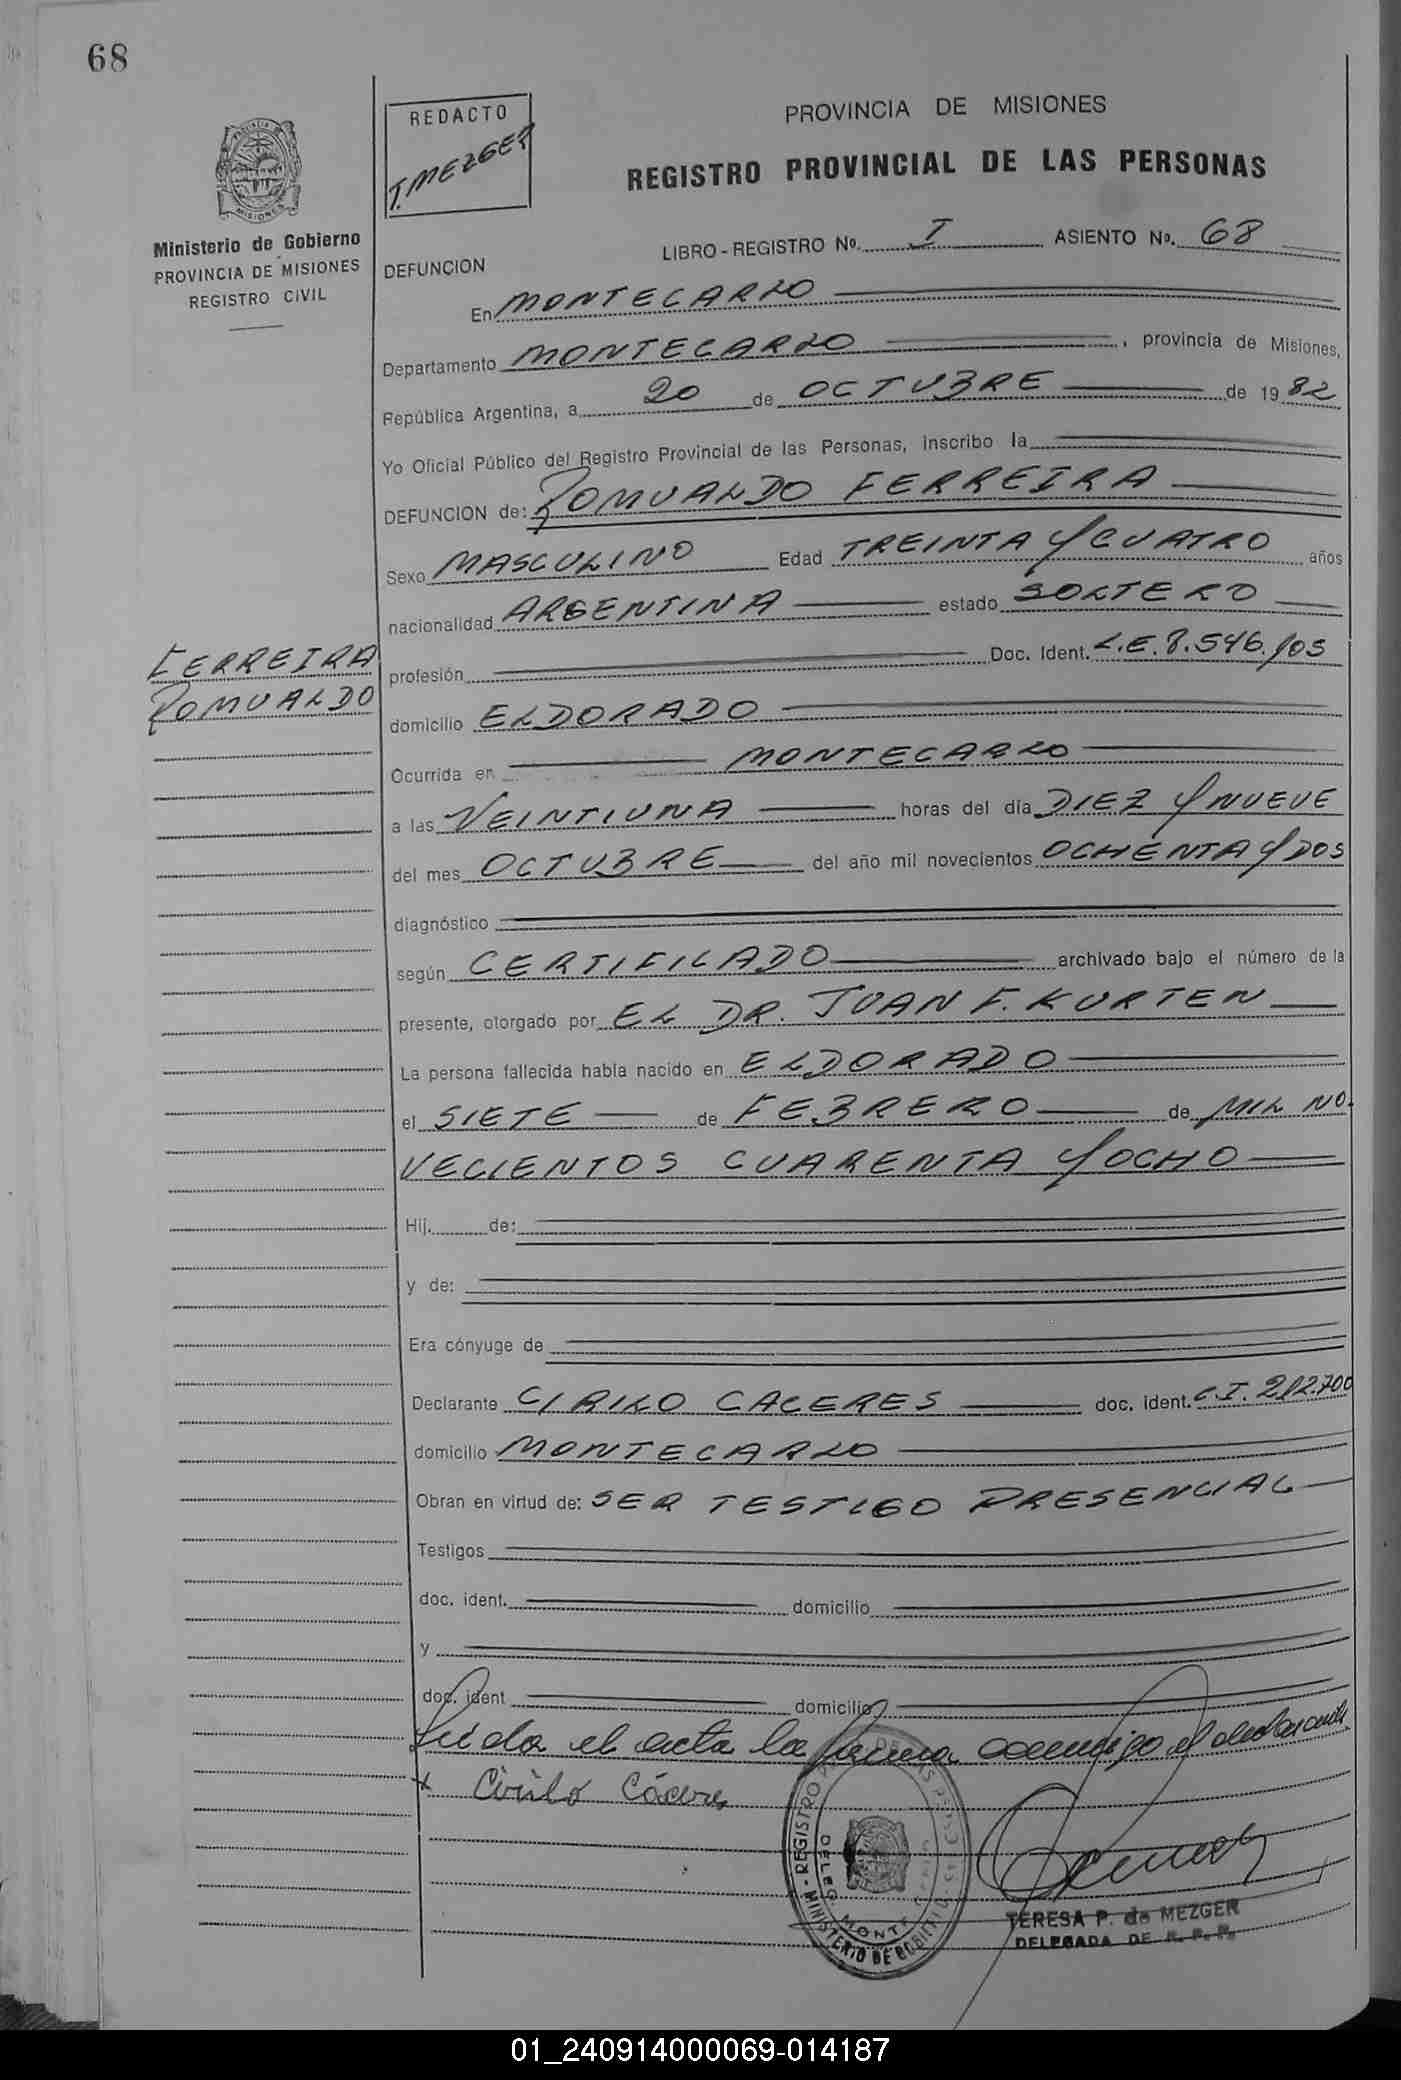 68
REDACTO
T. MEZGER
PROVINCIA DE MISIONES
REGISTRO PROVINCIAL DE LAS PERSONAS
Ministerio de Gobierno
PROVINCIA DE MISIONES
REGISTRO CIVIL
LIBRO - REGISTRO No. I ASIENTO No. 68
DEFUNCION
En MONTECARLO
Departamento MONTECARLO, provincia de Misiones,
República Argentina, a 20 de OCTUBRE de 1982
Yo Oficial Público del Registro Provincial de las Personas, inscribo la
DEFUNCION de: ROMUALDO FERREIRA
Sexo MASCULINO Edad TREINTA Y CUATRO años
nacionalidad ARGENTINA estado SOLTERO
FERREIRA
ROMUALDO
profesión Doc. Ident. L.E. 8.546.105
domicilio ELDORADO
Ocurrida en MONTECARLO
a las VEINTIUNA horas del día DIEZ Y NUEVE
del mes OCTUBRE del año mil novecientos OCHENTA Y DOS
diagnóstico
según CERTIFICADO archivado bajo el número de la
presente, otorgado por EL DR. JUAN F. KURTEN
La persona fallecida había nacido en ELDORADO
el SIETE de FEBRERO de MIL NO-
VECIENTOS CUARENTA Y OCHO
Hij. de:
y de:
Era cónyuge de
Declarante CIRILO CACERES doc. ident. C.I. 212.700
domicilio MONTECARLO
Obran en virtud de: SER TESTIGO PRESENCIAL
Testigos
doc. ident. domicilio
y
doc. ident domicilio
Leida el acta la firma conmigo el declarante
x Cirilo Cáceres
TERESA P. de MEZGER
DELEGADA DE R. P. P.
01_240914000069-014187